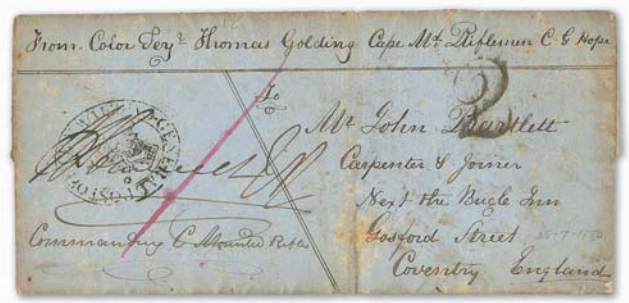 From Color Serjt Thomas Golding Cape Mtd Riflemen C. G Hope
To
Mr John Bartlett
Carpenter & Joiner
Next the Bugle Inn
Gosford Street
Coventry England
2
GENERAL POST OFFICE
Commanding C Mounted Rifles